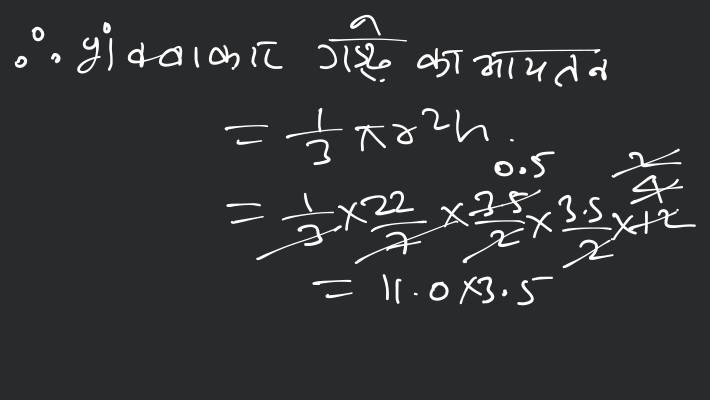 ∴ शंक्वाकार गड्ढे का आयतन
= 1/3 πr²h.
= 1/3 × 22/7 × 3.5/2 × 3.5/2 × 12 0.5 4 2
= 11.0 × 3.5